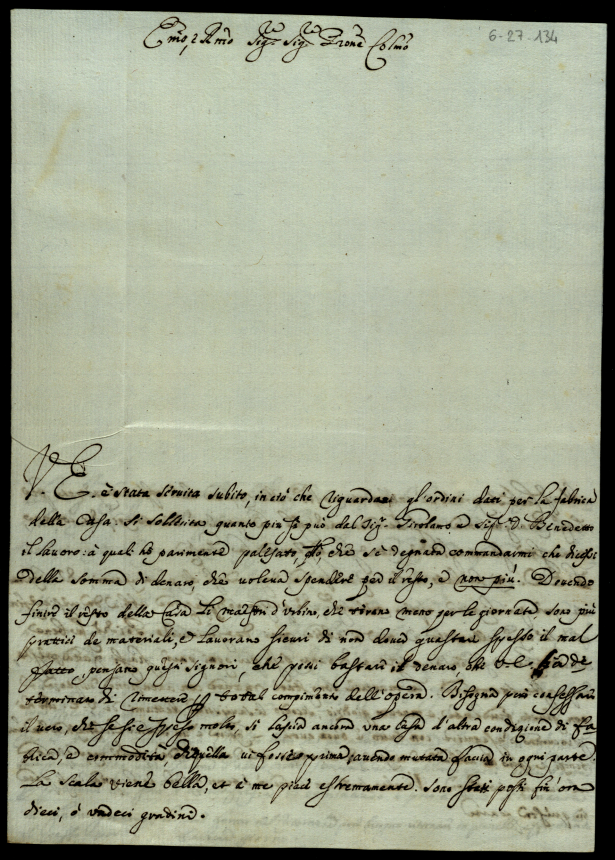 6-27-134
Emo, e Rmo Sigre Sigre Prone Colmo
V. E. è stata seruita subito, in ciò che riguardaua gl'ordini dati per la fabrica
della Casa. Si sollecita quanto più si può dal Sigr. Girolamo e Sigr. D. Benedetto
il lauoro: à quali hò parimente palesato, che si degnaua commandarmi che dicessi
della somma di denaro, che uoleua spendere per il resto, e non più. Douendo
finire il resto della Casa li mastri d'Urbino, che tirano meno per le giornate, sono più
prattici de materiali, e lauorano sicuri di non douer guastar spesso il mal
fatto, pensano questi Signori, che possi bastare il denaro che V. E.
terminato di rimettere total compimento dell'opera. Bisogna però confessare
il uero, che se si è speso molto, si lascia ancora una Casa d'altra condizione di fa
brica, e commodità di quella ui fosse prima, auendo mutata faccia in ogni parte.
La scala uiene bella, et è me piace estremamente. Sono stati posti fin'ora
dieci, ò undeci gradini.